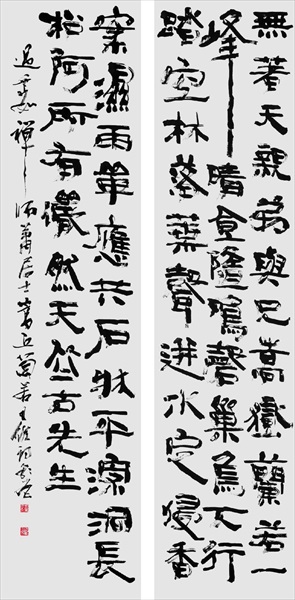 無著天親弟與兄嵩嶽蘭若一
峰晴食隨鳴磬巢烏下行
踏空林落葉聲迸水定侵香
案濕雨華應共石牀平深洞長
松阿所有儼然天竺古先生
過乘如禪師蕭居士嵩丘蘭若王維詩